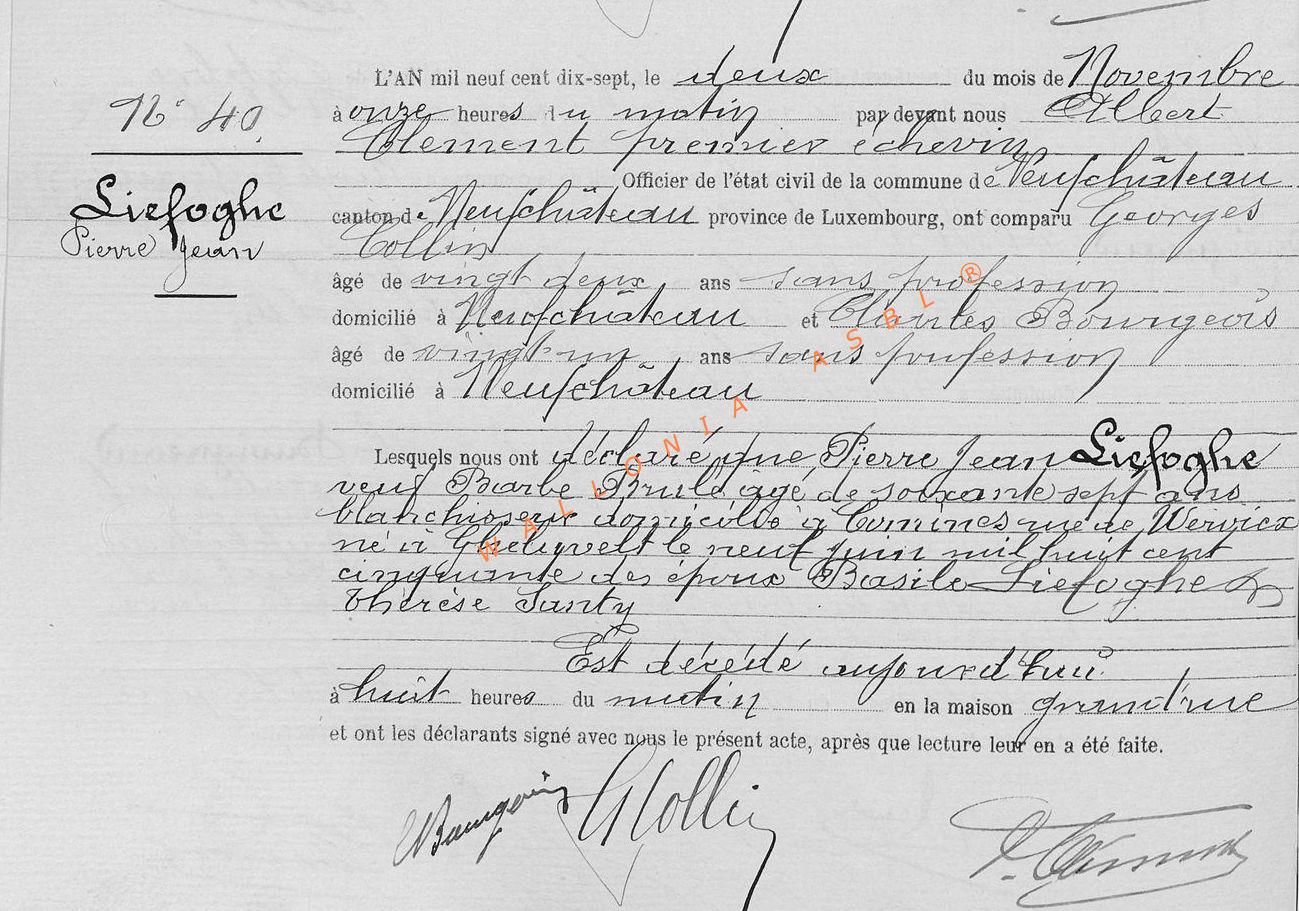 L'AN mil neuf cent dix-sept, le deux du mois de Novembre
N° 40.
à onze heures du matin par devant nous Albert
Clement premier échevin
Officier de l'état civil de la commune de Neufchâteau
Liefoghe
Pierre Jean
canton de Neufchâteau province de Luxembourg, ont comparu Georges
Collin
âgé de vingt deux ans sans profession
domicilié à Neufchâteau et Charles Bourgeois
âgé de vingt un ans sans profession
domicilié à Neufchâteau
Lesquels nous ont déclaré que Pierre Jean Liefoghe
veuf Barbe Brulé âgé de soixante sept ans
blanchisseur domicilié à Comines rue de Wervicx
né à Gheluvelt le neuf juin mil huit cent
cinquante des époux Basile Liefoghe &
Thérèse Santy
Est décédé aujourd'hui
à huit heures du matin en la maison grand'rue
et ont les déclarants signé avec nous le présent acte, après que lecture leur en a été faite.
Bourgeois GCollin
WALLONIA ASBL ®